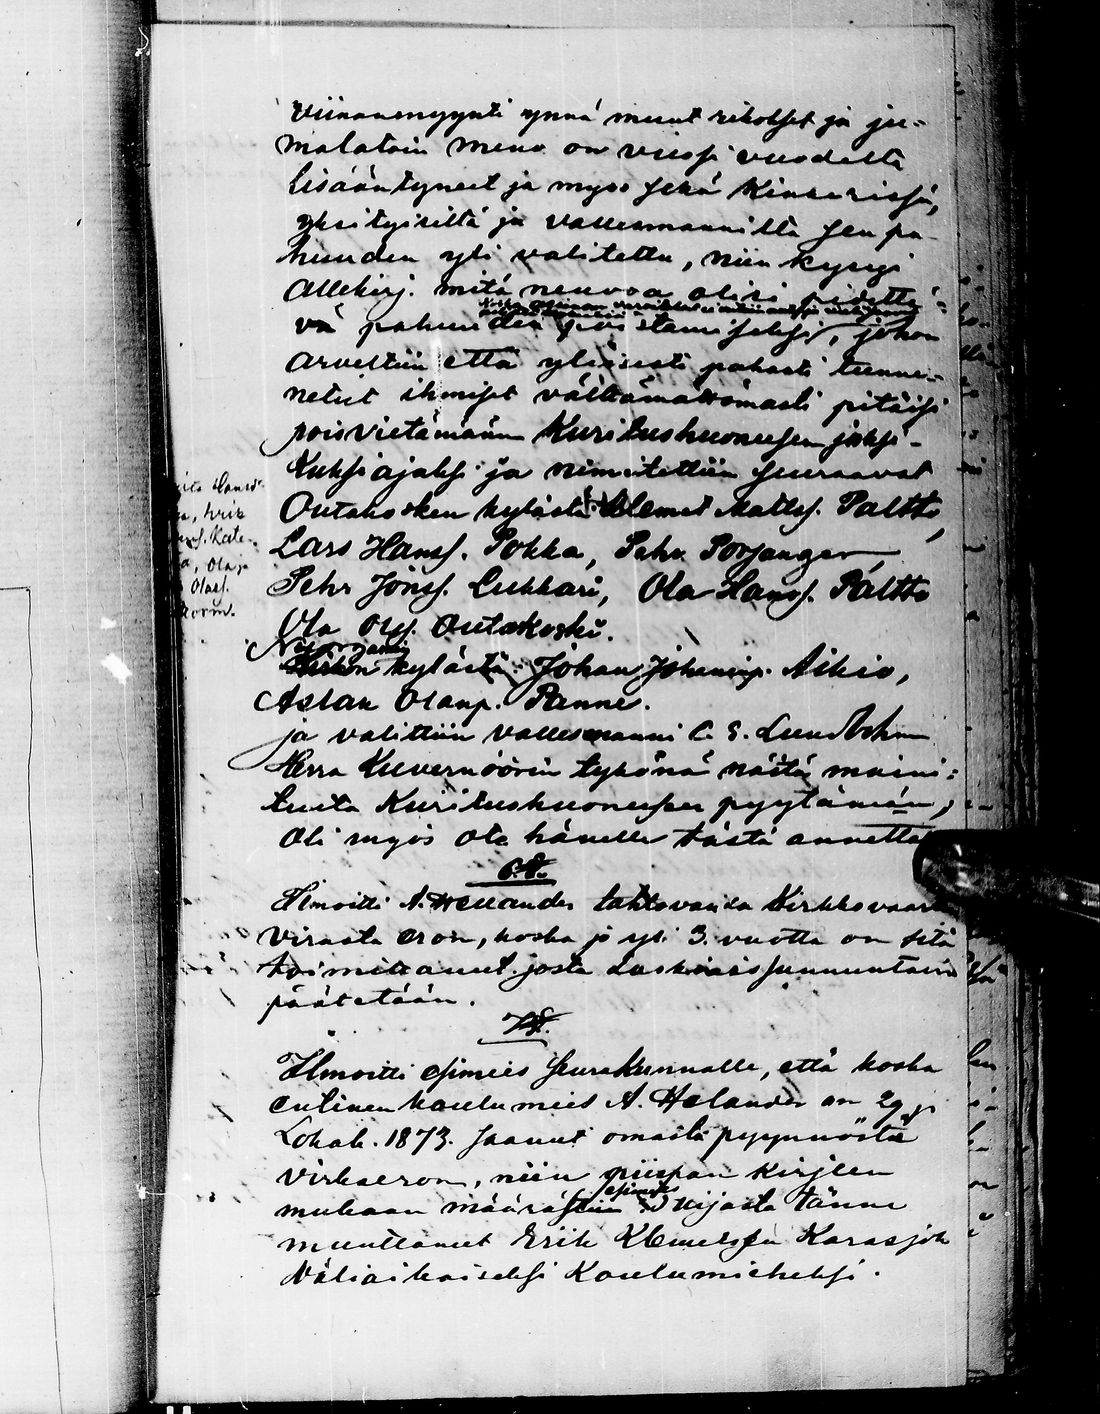 viinanmyynti ynnä muut rikokset ja ju-
malatoin meno on viissi vuodelta
lisääntyneet ja myös sekä Kinkerissä,
yksityisiltä ja vallesmannilta sen pa-
huuden yli valitettu, niin kysyi
Allekirj. mitä neuvoa olisi pidettä-
vä pahuuden poistamiseksi, johon
arveltiin että yleisesti pahasti tunne-
netut ihmiset välttämättömästi pitäisi
poisvietämään Kuritushuoneesen joksi-
kuksi ajaksi ja nimitettiin seuraavat
Outakosken kylästä: Klemet Mattss. Paltto,
Lars Hanss. Pokka, Pehr Porsanger
Pehr Jönss. Lukkari, Ola Hanss. Paltto
Ola Olss. Outakoski.
Nuorgamin
Kirkon kylästä: Johan Johaninp. Aikio,
Aslak Olanp. Panne.
ja valittiin vallesmanni C. G. Lundbohm
Herra Kuvernöörin tykönä näitä maini-
tuita Kuritushuoneesen pyytämään,
Oli myös ote hänelle tästä annettava
6.§.
Ilmoitti A. Helander tahtovansa Kirkkovaarin
virasta eron, koska jo yli 3. vuotta on sitä
toimittanut josta Laskiaissunnuntaina
päätetään.
7.§.
Ilmoitti esimies seurakunnalle, että koska
entinen koulumies A. Helander on 29 p
Lokak. 1873. saanut omasta pyynnöstä
virkaeron, niin piispan kirjeen
mukaan määrästiin esimies
Norjasta tänne
muuttanut Erik Klemetsen Karasjok
Väliaikaiseksi Koulumieheksi.